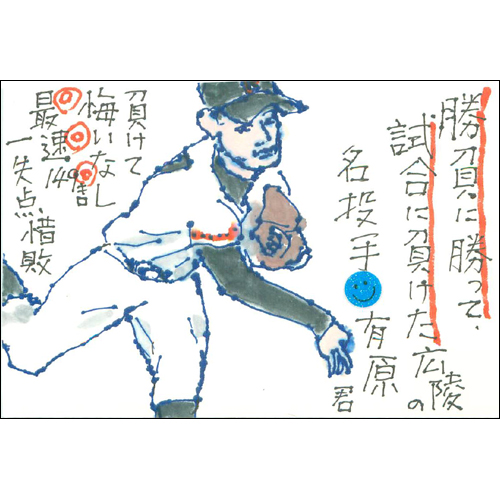 勝負に勝って、
試合に負けた広陵の
名投手有原君
負けて
悔いなし
最速149
一失点惜敗